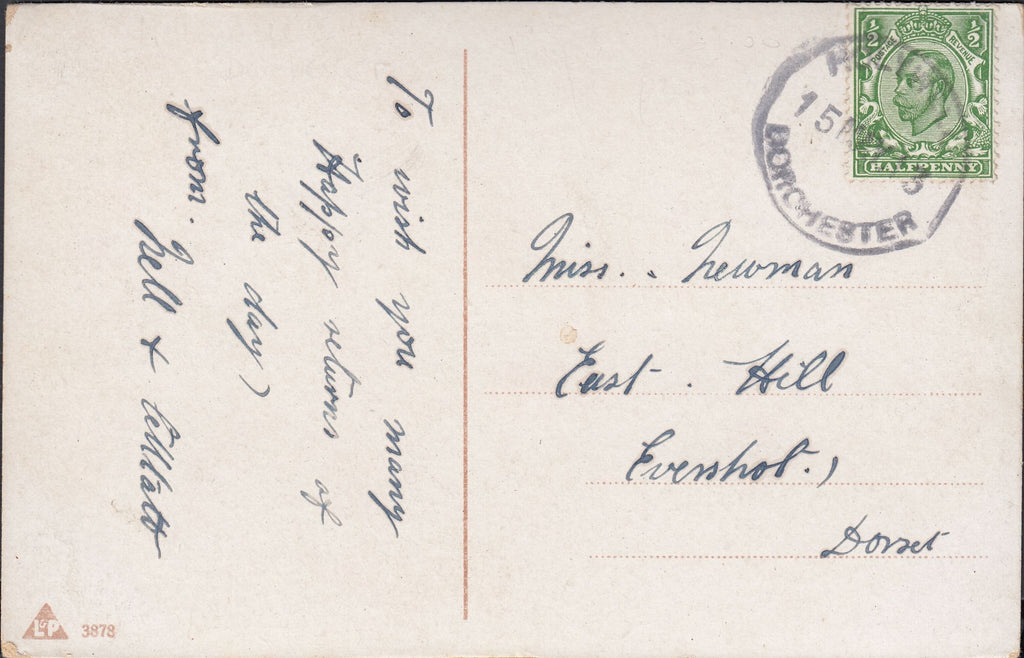 To wish you many
Happy returns of
the day)
from.
Nell &
½ ½
POSTAGE REVENUE
HALFPENNY
15
DORCHESTER
Miss. . Newman
East . Hill
Evershot.,
Dorset
L&P 3878